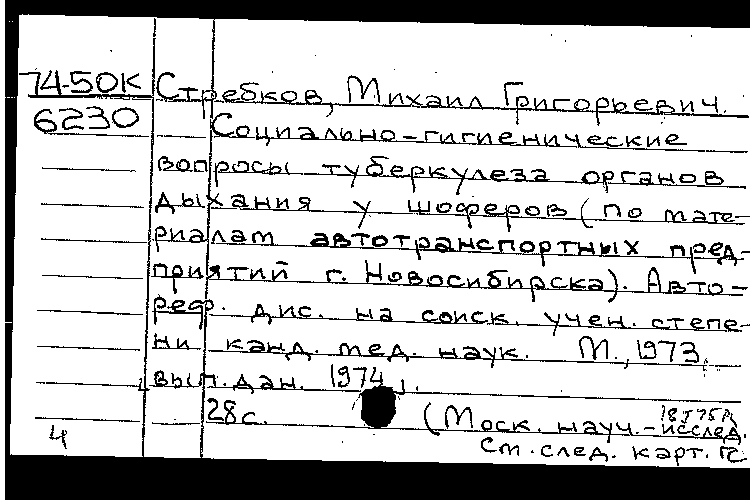 74-50К Стребков, Михаил Григорьевич.
6230 Социально-гигиенические
вопросы туберкулеза органов
дыхания у шоферов (по мате-
риалам автотранспортных пред-
приятий г. Новосибирска). Авто-
реф. дис. на соиск. учен. степе-
ни канд. мед. наук. М., 1973,
вып. дан. 1974].
28с. (Моск. науч.-исслед.
4 См. след. карт.